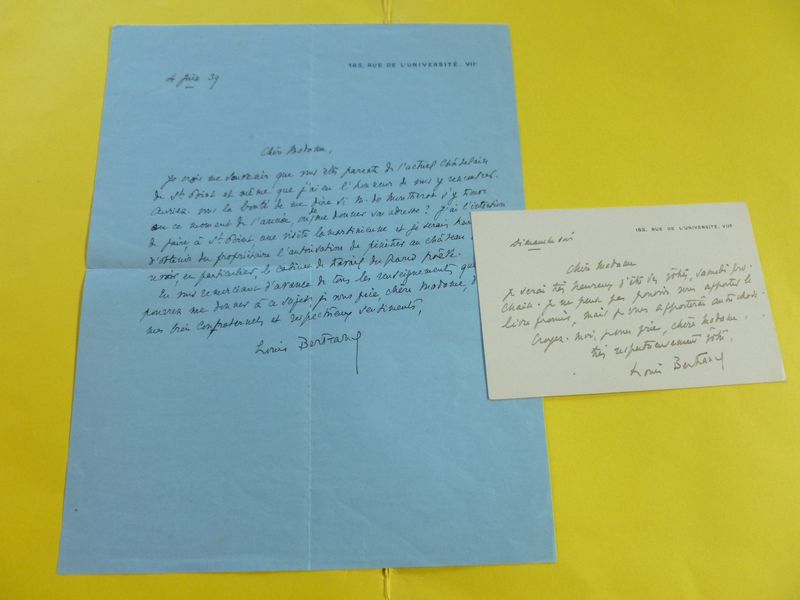 183, RUE DE L'UNIVERSITÉ. VIIᵉ
4 juin 39
Chère Madame,
Je crois me souvenir que vous êtes parente de l'actuel châtelain
de St Point et même que j'ai eu l'honneur de vous y rencontrer.
Auriez vous la bonté de me dire si M. de Montherot s'y trouve
en ce moment de l'année, ou me donner son adresse ? J'ai l'intention
de faire, à St Point une visite lamartinienne et je serais
d'obtenir du propriétaire l'autorisation de pénétrer au château
revoir, en particulier, le cabinet de travail du grand poète.
En vous remerciant d'avance de tous les renseignements que
pourrez me donner à ce sujet, je vous prie, chère Madame,
mes très confraternels et respectueux sentiments,
Louis Bertrand
183, RUE DE L'UNIVERSITÉ. VIIᵉ
Dimanche soir
Chère Madame
Je serai très heureux d'être des vôtres, samedi pro-
chain. Je ne peux pas pouvoir vous apporter le
livre promis, mais je vous apporterai autre chose.
Croyez-moi, je vous prie, chère Madame,
très respectueusement vôtre,
Louis Bertrand